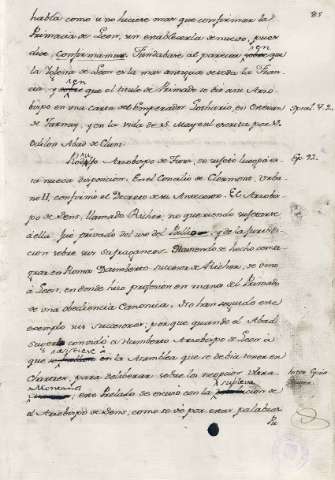 85
habla como si no huciese mas que confirmar la
Primacia de Leon, sin establecerla de nuevo, pues
dice, confirmamus. Fundabase al parecer en que
la Iglesia de Leon es la mas antigua de toda la Fran-
cia, y en que el titulo de Primado se dio a su Arzo-
bispo en una carta del Emperador Lothario, en
de Turnay, y en la vida de S. Mayeul escrita por S.
Odilon Abad de Cluni.
Rodulfo Arzobispo de Turs, se sujetó luego á es-
ta nueva disposicion. En el Concilio de Clermont, Urba-
no II, confirmó el Decreto de su Antecesor. El Arzobis-
po de Sens, llamado Richer, no queriendo sujetarse
á ella fue privado del uso del Pallio, y de la Jurisdic-
cion sobre sus sufraganeos. Haviendose hecho consa-
grar en Roma Daimberto sucesor de Richer, se vino
á Leon, en donde hizo profesion en mano del Primado
de una obediencia Canonica. No han seguido este
exemplo sus sucesores, porque quando el Abad
Sugerio convidó a Humberto Arzobispo de Leon á
que asistiese á
en la Asamblea que se debia tener en
Chartres, para deliberar sobre los negocios Ultra
este Prelado se escusó con la
el Arzobispo de Sens, como se ve por estas palabras
Su
Ep. 22.